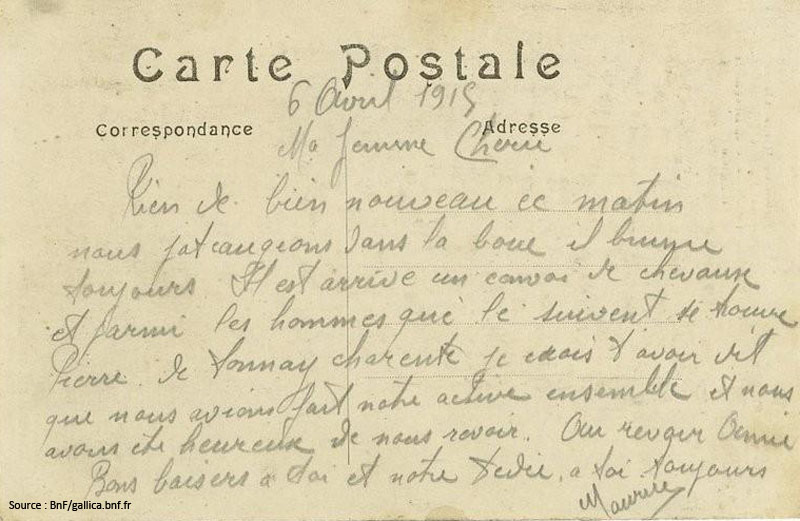 Carte Postale
6 Avril 1915
Correspondance Adresse
Ma femme Cherie
Rien de bien nouveau ce matin
nous dans la boue il brume
toujours Il est arrivé un convoi de chevaux
et parmi les hommes qui le suivent se trouve
Pierre de Tonnay charente je crois t avoir dit
que nous avions fait notre active ensemble et nous
avons ete heureux de nous revoir. Au
Bons baisers a toi et notre Dédé, a toi toujours
Maurice
Source : BnF/gallica.bnf.fr